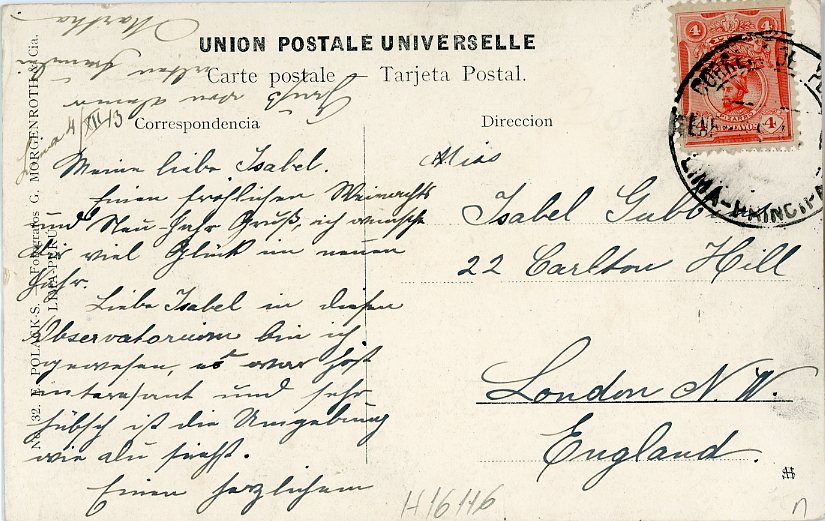 UNION POSTALE UNIVERSELLE
Carte postale — Tarjeta Postal.
Correspondencia
Direccion
Lima 4/XII 13
Meine liebe Isabel.
Einen fröhlichen Weinachts
und Neu-Jahr Gruß, ich wünsche
dir viel Glück im neuen
Jahr.
Liebe Isabel in diesen
Observatorium bin ich
gewesen, es war höst
interesant und sehr
hübsch ist die Umgebung
wie du siehst.
Einen herzlichem
Gruß von deiner
Martha
Miss
Isabel Gubb
22 Carlton Hill
London N.W.
England.
No. 32. E. POLACK-S. — Fotógrafos G. MORGENROTH & Cia.
LIMA-PERÚ
4 4
4
CORREOS DE
LIMA-PRINCIPAL
H16116
n